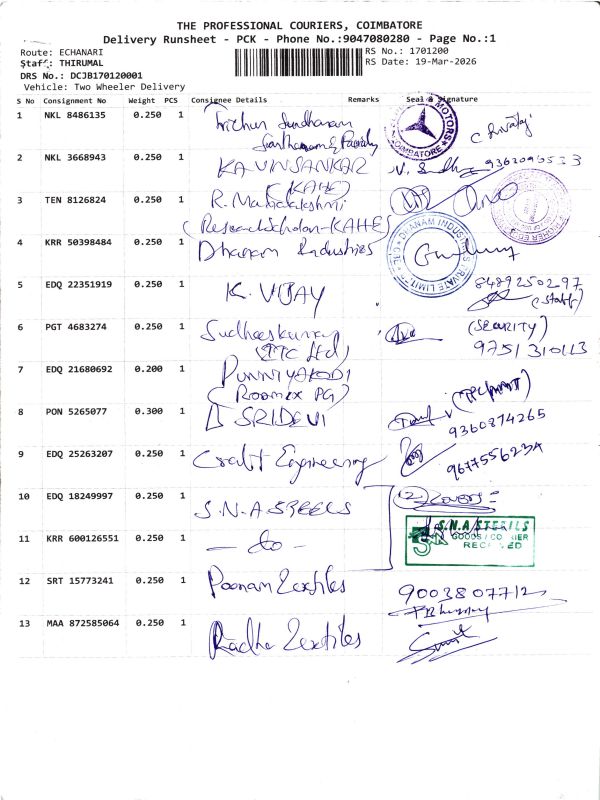 THE PROFESSIONAL COURIERS, COIMBATORE
Delivery Runsheet - PCK - Phone No.:9047080280 - Page No.:1
Route: ECHANARI
RS No.: 1701200
Staff: THIRUMAL
RS Date: 19-Mar-2026
DRS No.: DCJB170120001
Vehicle: Two Wheeler Delivery
S No Consignment No Weight PCS Consignee Details Remarks Seal & Signature
1 NKL 8486135 0.250 1 Trichur Sundharam
Santhanam & Family
MOTORS COIMBATORE
2 NKL 3668943 0.250 1 KAVINSANKAR
(KAHE)
3 TEN 8126824 0.250 1 R.
(Research Scholar-KAHE)
4 KRR 50398484 0.250 1 Dhanam Industries
DHANAM INDUSTRIES PRIVATE LIMITED
5 EDQ 22351919 0.250 1 K. VIJAY 8489250297
(Staff)
6 PGT 4683274 0.250 1 Sudheeskumar (SECURITY)
(ITC Ltd) 9751310113
7 EDQ 21680692 0.200 1 PUNNIYAKODI
(Roomex PG)
8 PON 5265077 0.300 1 SRIDEVI 9360874265
9 EDQ 25263207 0.250 1 Craft Engineering
10 EDQ 18249997 0.250 1 S.N.A STEELS (2) Covers
S.N.A STERILS
GOODS / COURIER
RECEIVED
11 KRR 600126551 0.250 1 - do -
12 SRT 15773241 0.250 1 Poonam Textiles 9003807712
13 MAA 872585064 0.250 1 Radha Textiles